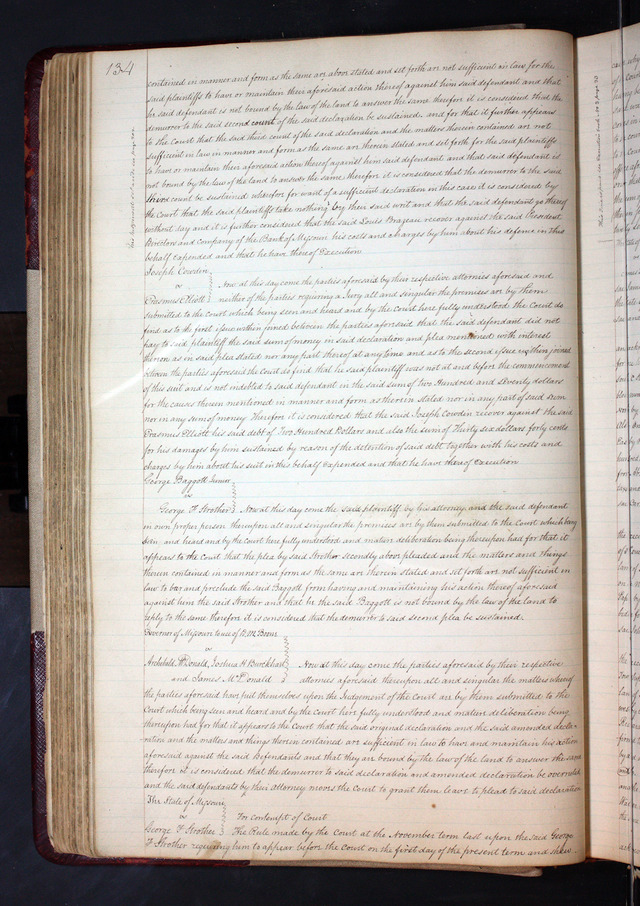 134
contained in manner and form as the same are above stated and set forth are not sufficient in law for the
said plaintiffs to have or maintain their aforesaid action thereof against him said defendant and that
he said defendant is not bound by the law of the land to answer the same therefore it is considered that the
demurrer to the said second count of the said declaration be sustained, and for that it further appears
to the Court that the said third count of the said declaration and the matters therein contained are not
sufficient in law in manner and form as the same are therein stated and set forth for the said plaintiffs
to have or maintain their aforesaid action thereof against him said defendant and that said defendant is
not bound by the law of the land to answer the same, therefore it is considered that the demurrer to the said
third count be sustained wherefore for want of a sufficient declaration in this case it is considered by
the Court that the said plaintiffs take nothing by their said writ and that the said defendant go thereof
without day and it is further considered that the said Louis Brazeau recover against the said President
Directors and Company of the Bank of Missouri his costs and charges by him about his defence in this
behalf expended and that he have thereof Execution
Joseph Cowden
vs
Erasmus Elliott
Now at this day come the parties aforesaid by their respective attornies aforesaid and
neither of the parties requiring a Jury all and singular the premises are by them
submitted to the court which being seen and heard and by the Court here fully understood the Court do
find as to the first issue within joined between the parties aforesaid that the said defendant did not
pay to said plaintiff the said sum of money in said declaration and plea mentioned with interest
thereon as in said plea stated nor any part thereof at any time and as to the second issue within joined
between the parties aforesaid the Court do find that he said plaintiff was not at and before the commencement
of this suit and is not indebted to said defendant in the said sum of two Hundred and Seventy dollars
for the causes therein mentioned in manner and form as therein stated nor in any part of said sum
nor in any sum of money Therefore it is considered that the said Joseph Cowden recover against the said
Erasmus Elliott his said debt of Two Hundred Dollars and also the sum of Thirty six dollars forty cents
for his damages by him sustained by reason of the detention of said debt together with his costs and
charges by him about his suit in this behalf expended and that he have thereof Execution
George Baggott Junior
vs
George F Strother
Now at this day come the said plaintiff by his attorney and the said defendant
in own proper person thereupon all and singular the premises are by them submitted to the Court which being
seen and heard and by the court here fully understood and mature deliberation being thereupon had for that it
appears to the Court that the plea by said Strother secondly above pleaded and the matters and things
therein contained in manner and form as the same are therein stated and set forth are not sufficient in
law to bar and preclude the said Baggott from having and maintaining his action thereof aforesaid
against him the said Strother and that he the said Baggott is not bound by the law of the land to
reply to the same therefore it is considered that the demurrer to said second plea be sustained.
Governor of Missouri to use of R M Boon
vs
Archibald McDonald, Joshua H Burckhart
and James McDonald
Now at this day come the parties aforesaid by their respective
attornies aforesaid thereupon all and singular the matters whereof
the parties aforesaid have put themselves upon the Judgement of the Court are by them submitted to the
Court which being seen and heard and by the Court here fully understood and mature deliberation being
thereupon had for that it appears to the Court that the said original declaration and the said amended decla-
ration and the matters and things therein contained are sufficient in law to have and maintain his action
aforesaid against the said Defendants and that they are bound by the law of the land to answer the same
therefore it is considered that the demurrer to said declaration and amended declaration be overruled
and the said defendants by their attorney moves the Court to grant them leave to plead to said declaration
The State of Missouri
vs
George F Strother
For contempt of Court
The Rule made by the Court at the November term last upon the said George
F Strother requiring him to appear before the Court on the first day of the present term and shew